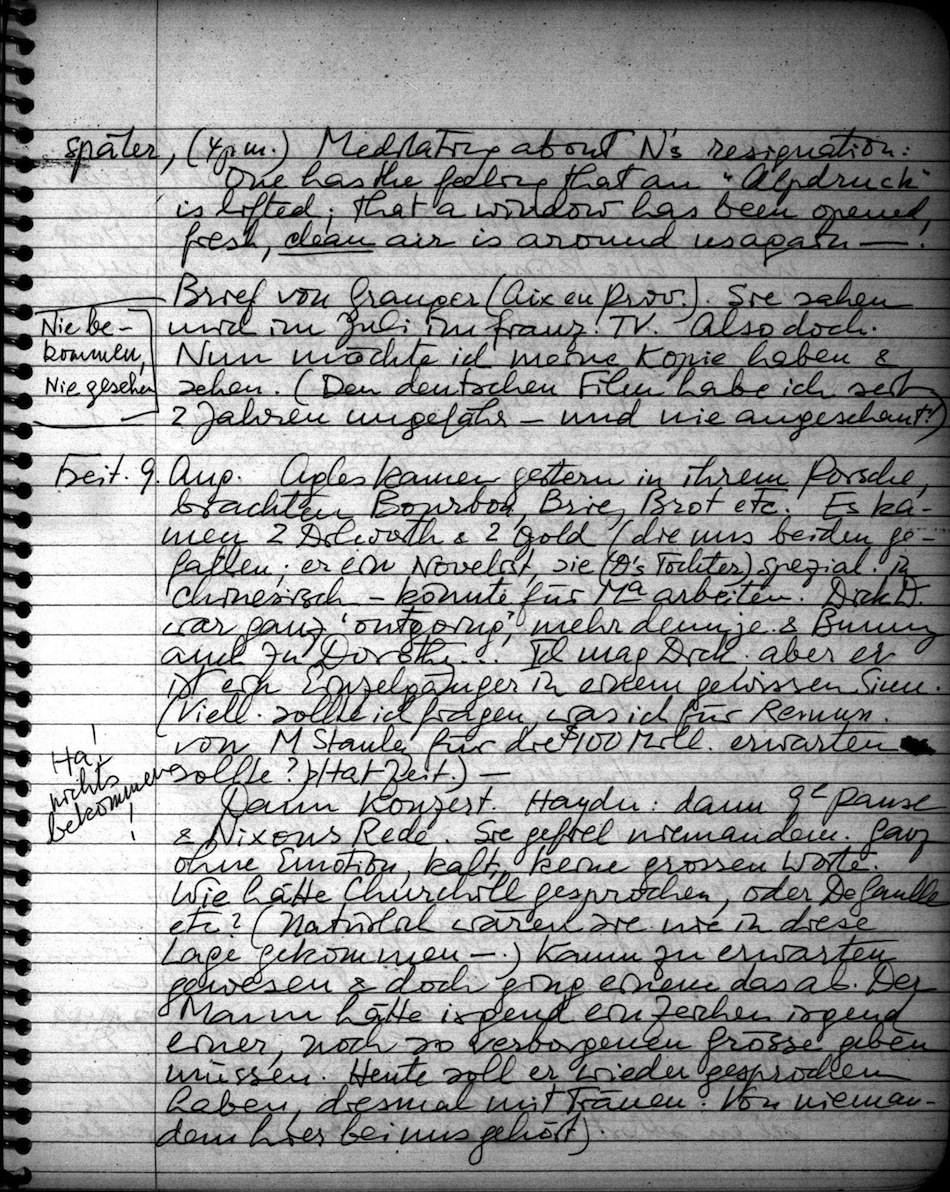 später, (4 p.m.) Meditating about N's resignation:
One has the feeling that an "Alpdruck"
is lifted; that a window has been opened,
fresh, clean air is around us again —.
Brief von Granger (Aix en Prov.). Sie sahen
mich im Juli im franz. TV. Also doch.
Nun möchte ich meine Kopie haben &
sehen. (Den deutschen Film habe ich seit
2 Jahren ungefähr – und nie angeschaut!)
Nie be-
kommen,
Nie gesehen
Freit. 9. Aug. Agles kamen gestern in ihrem Porsche,
brachten Bourbon, Brie, Brot etc. Es ka-
men 2 Dilworth & 2 Gold (die uns beiden ge-
fallen; er ein Novelist, sie (D's Tochter) spezial. in
chinesisch – könnte für Ma arbeiten. Dick D.
war ganz 'outgoing', mehr denn je. & Bunny
auch zu Dorothy... Ich mag Dick, aber er
ist ein Einzelgänger in einem gewissen Sinn.
(Viell. sollte ich fragen, was ich für Remun.
von M Stanley für die $100 Mill. erwarten
sollte?) (Hat Zeit.) —
Ha!
nichts
bekommen
!
Dann Konzert. Haydn: dann 9h Pause
& Nixons Rede. Sie gefiel niemandem. Ganz
ohne Emotion, kalt, keine grossen Worte.
Wie hätte Churchill gesprochen, oder DeGaulle
etc? (Natürlich wären sie nie in diese
Lage gekommen —.) Kaum zu erwarten
gewesen & doch ging einem das ab. Der
Mann hätte irgend ein Zeichen irgend
einer, noch so verborgenen Grösse geben
müssen. Heute soll er wieder gesprochen
haben, diesmal mit Tränen. Von nieman-
dem hier bei uns gehört).